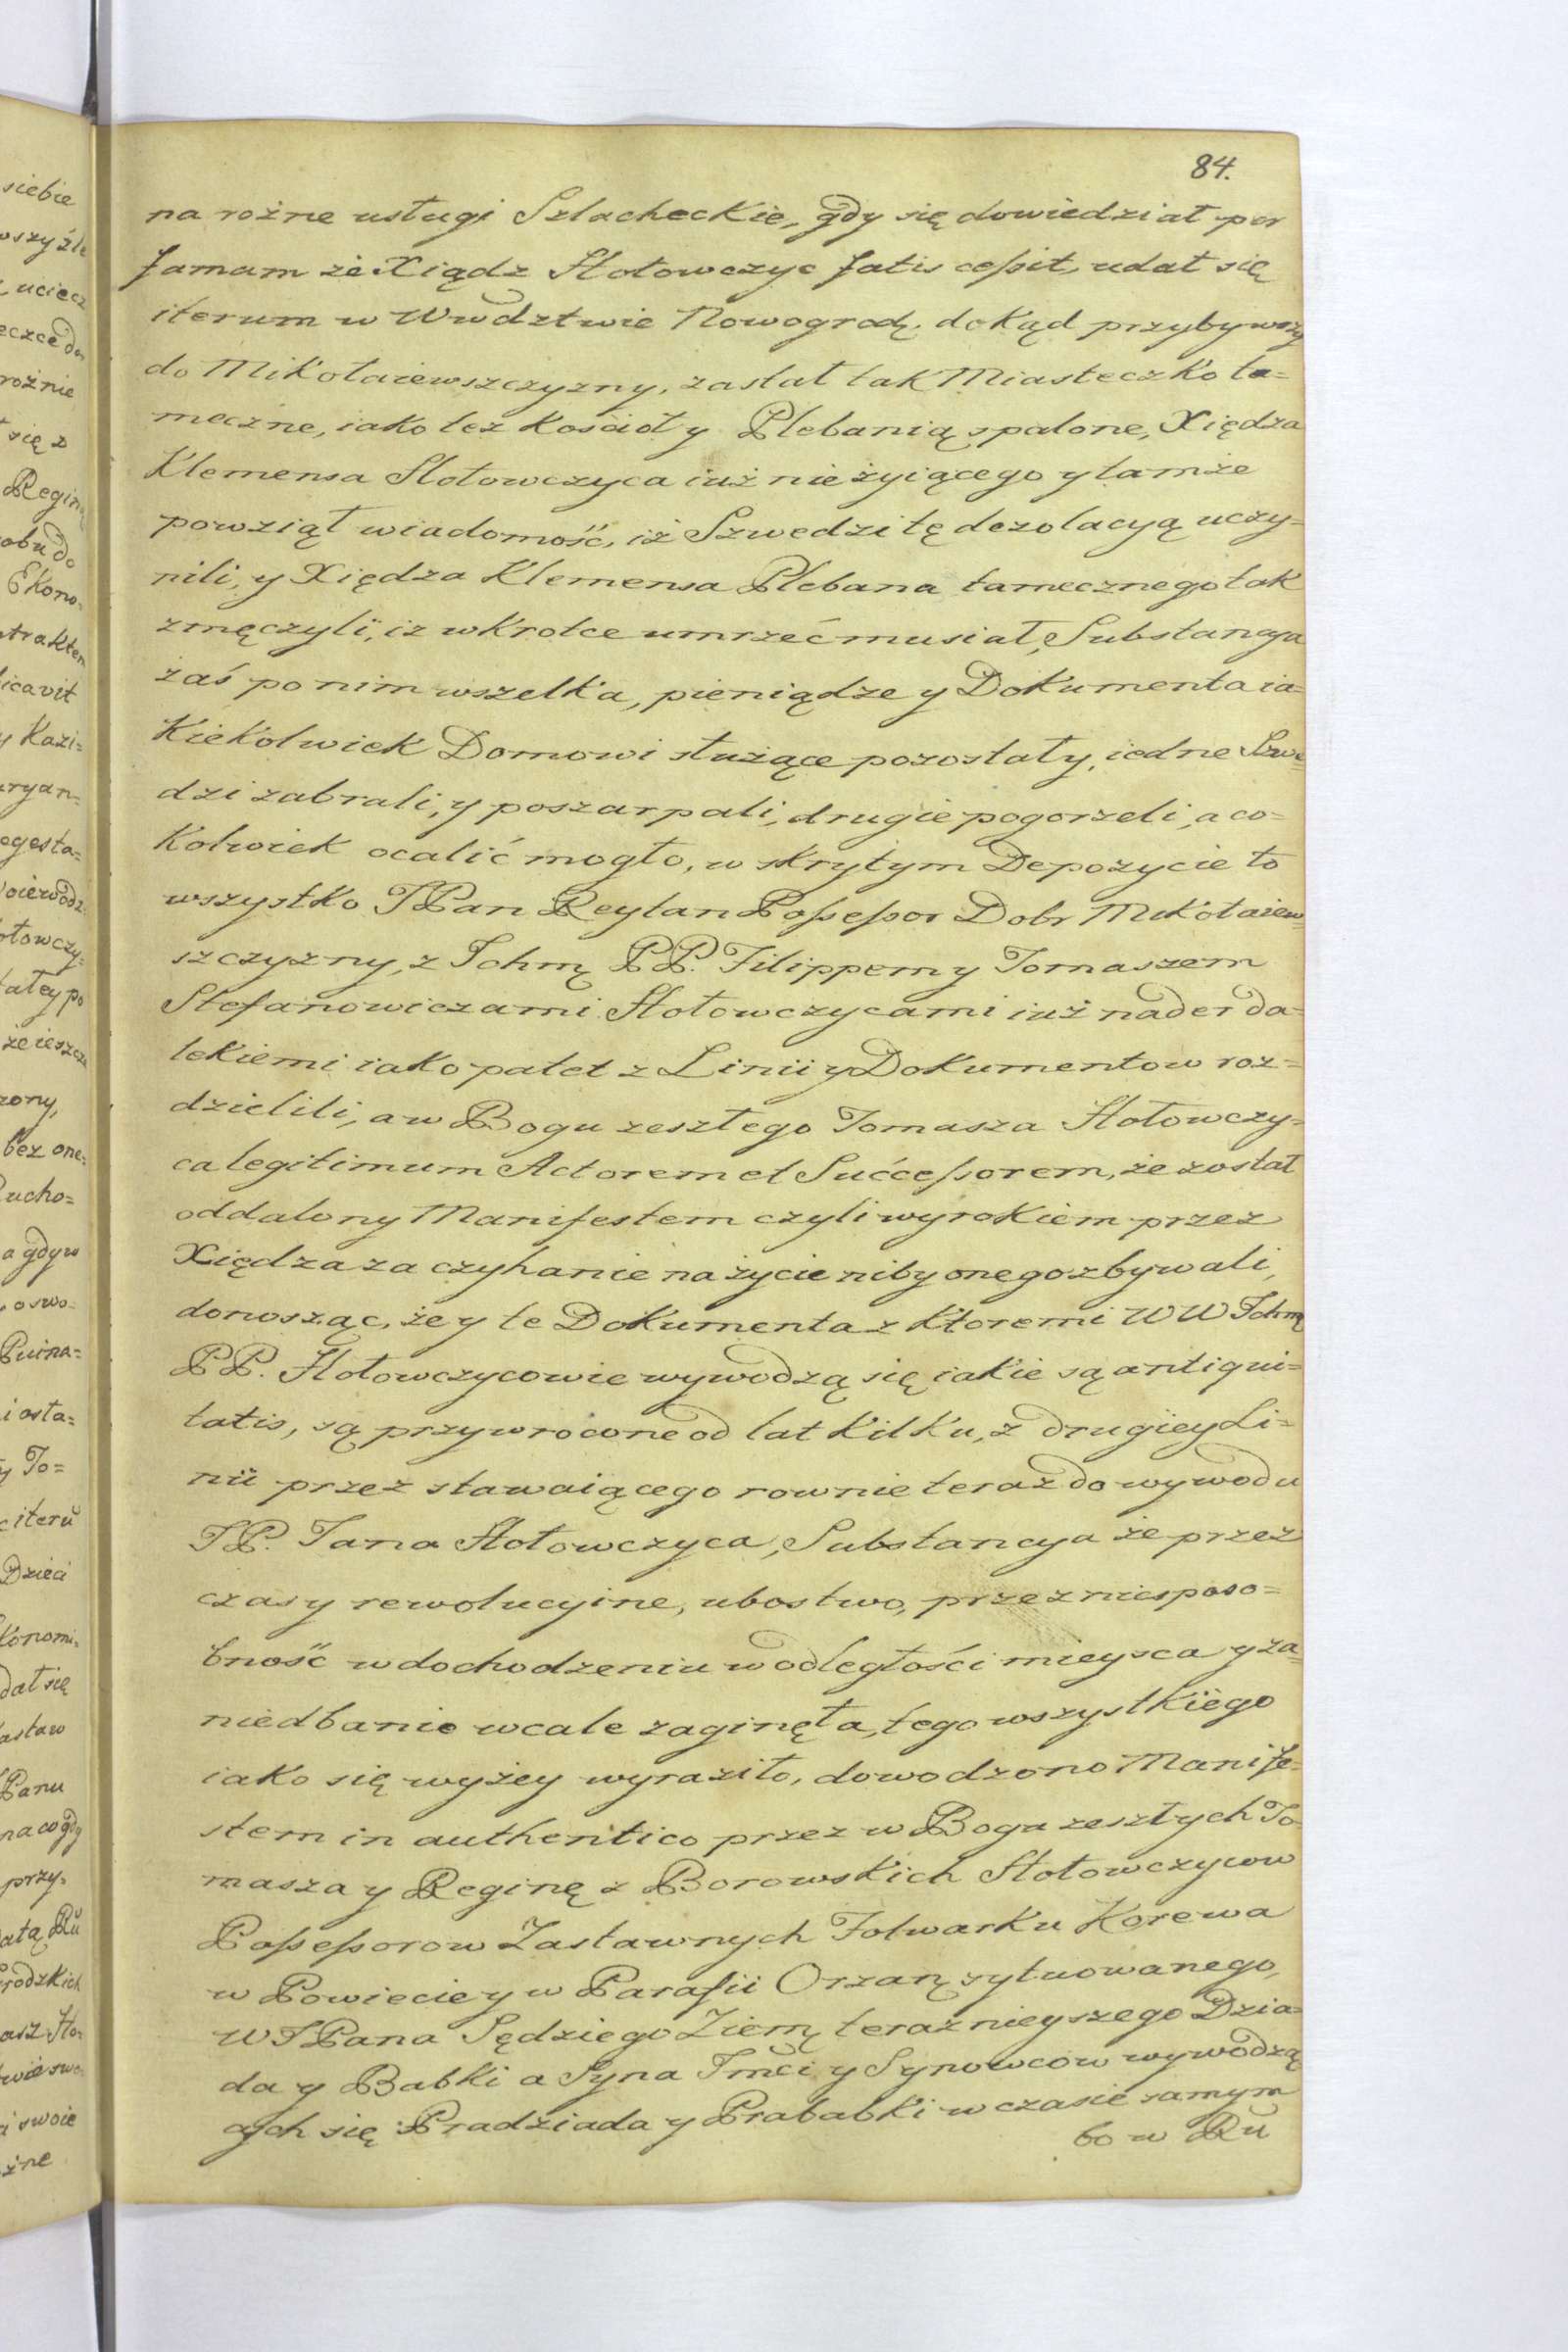 84.
na rożne usługi Szlacheckie, gdy się dowiedział per
famam że Xiądz Hołowczyc fatis ceſsit, udał się
iterum w Wwdztwie Nowogrodz. dokąd przybywszy
do Mikołaiewszczyzny, zastał tak Miasteczko ta=
meczne, iako też kościoł y Plebanią spalone, Xiędza
Klemensa Hołowczyca iuż nie żyiącego y tamże
powziął wiadomość, iż Szwedzi tę dezolacyą uczy=
nili, y Xiędza Klemensa Plebana tamecznego tak
zmęczyli, iż wkrotce umrzeć musiał, Substancya
zaś po nim wszelka, pieniądze y Dokumenta ia=
kiekolwiek Domowi służące pozostały, iedne Szwe=
dzi zabrali, y poszarpali, drugie pogorzeli, a co=
kolwiek ocalić mogło, w skrytym Depozycie to
wszystko JPan Reytan Poſseſsor Dobr Mikołaiew=
szczyzny, z Ichmę PP. Filippem y Tomaszem
Stefanowiczami Hołowczycami iuż nader da=
lekiemi iako patet z Linii y Dokumentow roz=
dzielili, a w Bogu zeszłego Tomasza Hołowczy=
ca legitimum Actorem et Succeſsorem, że został
oddalony Manifestem czyli wyrokiem przez
Xiędza za czyhanie na życie niby onego zbywali,
donosząc, że y te Dokumenta z ktoremi WW Ichmę
PP. Hołowczycowie wywodzą się iakie są antiqui=
tatis, są przywrocone od lat kilku, z drugiey Li=
nii przez stawaiącego rownie teraz do wywodu
JP. Jana Hołowczyca, Substancya że przez
czasy rewolucyine, ubostwo, przez niesposo=
bność w dochodzeniu w odległości mieysca y za=
niedbanie wcale zaginęła, tego wszystkiego
iako się wyżey wyraziło, dowodzono Manife=
stem in authentico przez w Bogu zeszłych To=
masza y Reginę z Borowskich Hołowczycow
Poſseſsorow Zastawnych Folwarku Korewa
w Powiecie y w Parafii Orzanę sytuowanego,
WJPana Sędziego Ziemę teraznieyszego Dzia=
da y Babki a Syna Jmci y Synowcow wywodzą
cych się Pradziada y Prababki w czasie samym
bo w Rŭ